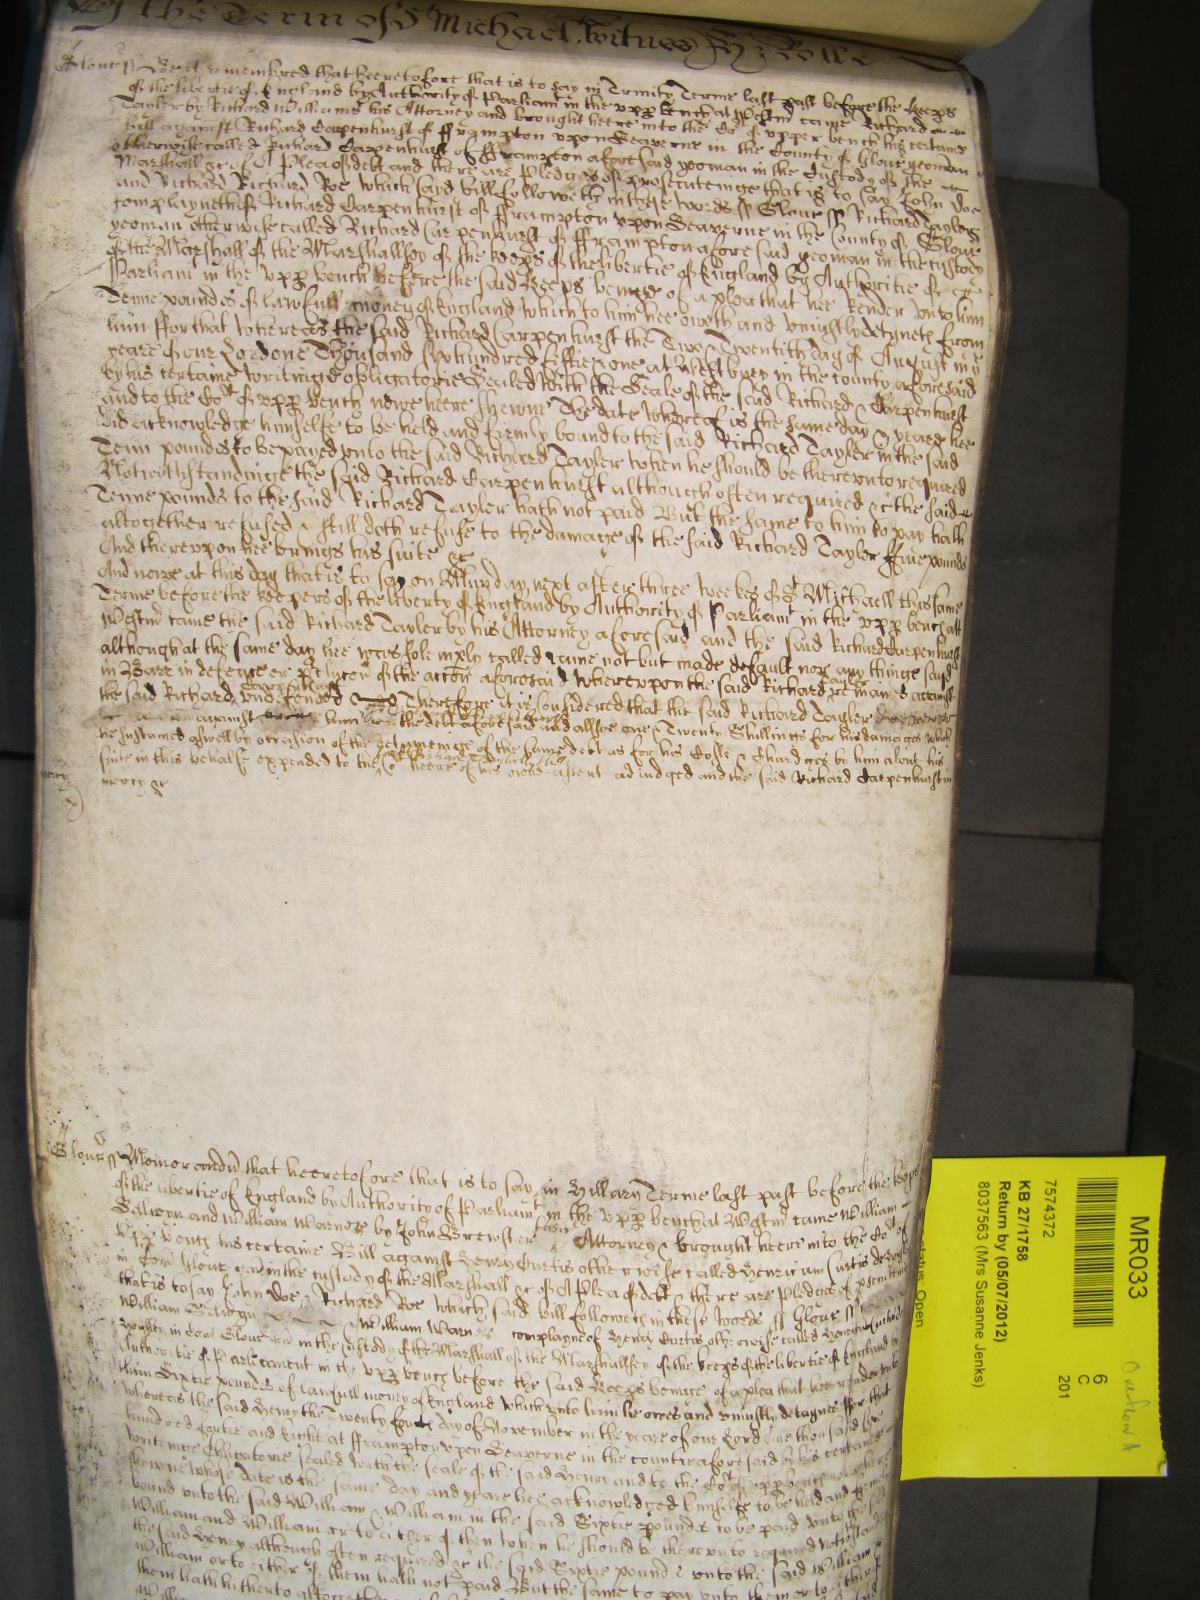 Of the Term of St Michael. Witnes Hy: Rolle
Glouc ss Be it remembred that heeretofore that is to say in Trinity Terme last past before the keeps
of the libertie of England by Authority of Parliam in the upp bench at Westm came Richard
Tayler by Richard Williams his Attorney and brought heere into the Cot of upper bench his certaine
bill against Richard Carpenhurst of fframpton upon Seaverne in the County of Glouc yeoman
otherwise called Richard Carpenhurst of fframpton aforesaid yeoman in the Custody of the
Marshall &c of A Plea of debt and there are Pledges of prosecuteinge that is to say John Doe
and Richard Richard Roe which said bill followeth in these words ss Glouc ss Richard Tayler
complayneth of Richard Carpenhurst of fframpton upon Seaverne in the County of Glouc
yeoman otherwise called Richard Carpenhurst of fframpton aforesaid yeoman in the custody
of the Marshall of the Marshallsey of the keeps of the libertie of England by Authoritie of
Parliam in the upp bench before the said Keeps beinge of a plea that hee Render unto him
Tenne poundes of lawfull money of England which to him hee oweth and uniustly detayneth from
him ffor that whereas the said Richard Carpenhurst the Two & Twentith day of August in ye
yeare of our Lord one Thousand Six hundred ffiftie & one at in the county aforesaid
by his certaine writinge obligatorie Sealed with the Seale of the said Richard Carpenhurst
and to the Cot of upp bench nowe heere shewne The date whereof is the same day & yeare hee
did acknowledge himselfe to be held and firmly bound to the said Richard Tayler in the said
Tenn poundes to be payed unto the said Richard Tayler when he should be thereunto required
Notwithstandinge the said Richard Carpenhurst although often required &c the said
Tenne pounds to the said Richard Tayler hath not paid But the same to him to pay hath
altogether refused & still doth refuse to the damage of the said Richard Tayler ffive pounds
And thereupon hee brings his suite &c
And nowe at this day that is to say on Munday next after three weekes of St Michaell this same
Terme before the keepers of the liberty of England by Authority of Parliamt in the upp bench att
Westm came the said Richard Tayler by his Attorney aforesaid and the said Richard Carpenhurst
although at the same day hee was solemnly called came not but made default nor any things said
in Barr in defence or p'clucon of the accon aforesaid wherewpon the said Richard remaines against
the said Richard Carpenhurst undefended Therefore it is considered that the said Richard Tayler
against him the debt aforesaid and allsoe one & Twenty Shillings for his damages which
he sustained aswell by occasion of the deteyneinge of the same debt as for his Costs & Chardges by him about his
suite in this behalfe expended to the heere of his owne assent adiudged and the said Richard Carpenhurst in
mercy &c
mercy
Glouc ss Memorandu that heeretofore that is to say in Hillary Terme last past before the keeps
of the libertie of England by Authority of Parliamt in the upp bench at Westm came William
Selwyn and William Warner by John Brewster their Attorney & brought heere into the Cot of
upp bench his certaine Bill against Henry Curtis otherwise called Henricum Curtis de
in Com Glouc in the custody of the Marshall &c of A Plea of debt & there are Pledges of prosecuteinge
that is to say John Doe & Richard Roe which said bill followeth in these words ss Glouc ss
William Selwyn & William Warner complayne of Henry Curtis otherwise called Henricum
in Com Glouc in the custody of the Marshall of the Marshallsey of the keeps of the libertie of England by
Authoritie of Parleament in the upp bench before the said Keeps beinge of a plea that hee render unto
him Sixtie poundes of lawfull money of England which unto him he owes and uniustly detaynes ffor that
whereas the said Henry the Twenty fourth day of November in the yeare of our Lord one thousand six
hundred fortie and Eight at fframpton upon Seaverne in the countie aforesaid by his certaine
writeinge Obligatorie sealed with the seale of the said Henry and to the Cot of upp bench nowe heere
shewne whose date is the same day and yeare hee acknowledged himselfe to be held and
bound unto the said William & William in the said Sixtie pounds to be paid unto the
William and William or to either of them when he should be thereunto required
the said Henry although often required &c the said Sixtie pounds unto the said William
William or to either of them hath not paid But the same to pay unto them or to either of
them hath hitherto
MR033
Overflow A
6
C
201
7574372
KB 27/1758
Return by (05/07/2012)
8037563 (Mrs Susanne Jenks)
Status: Open